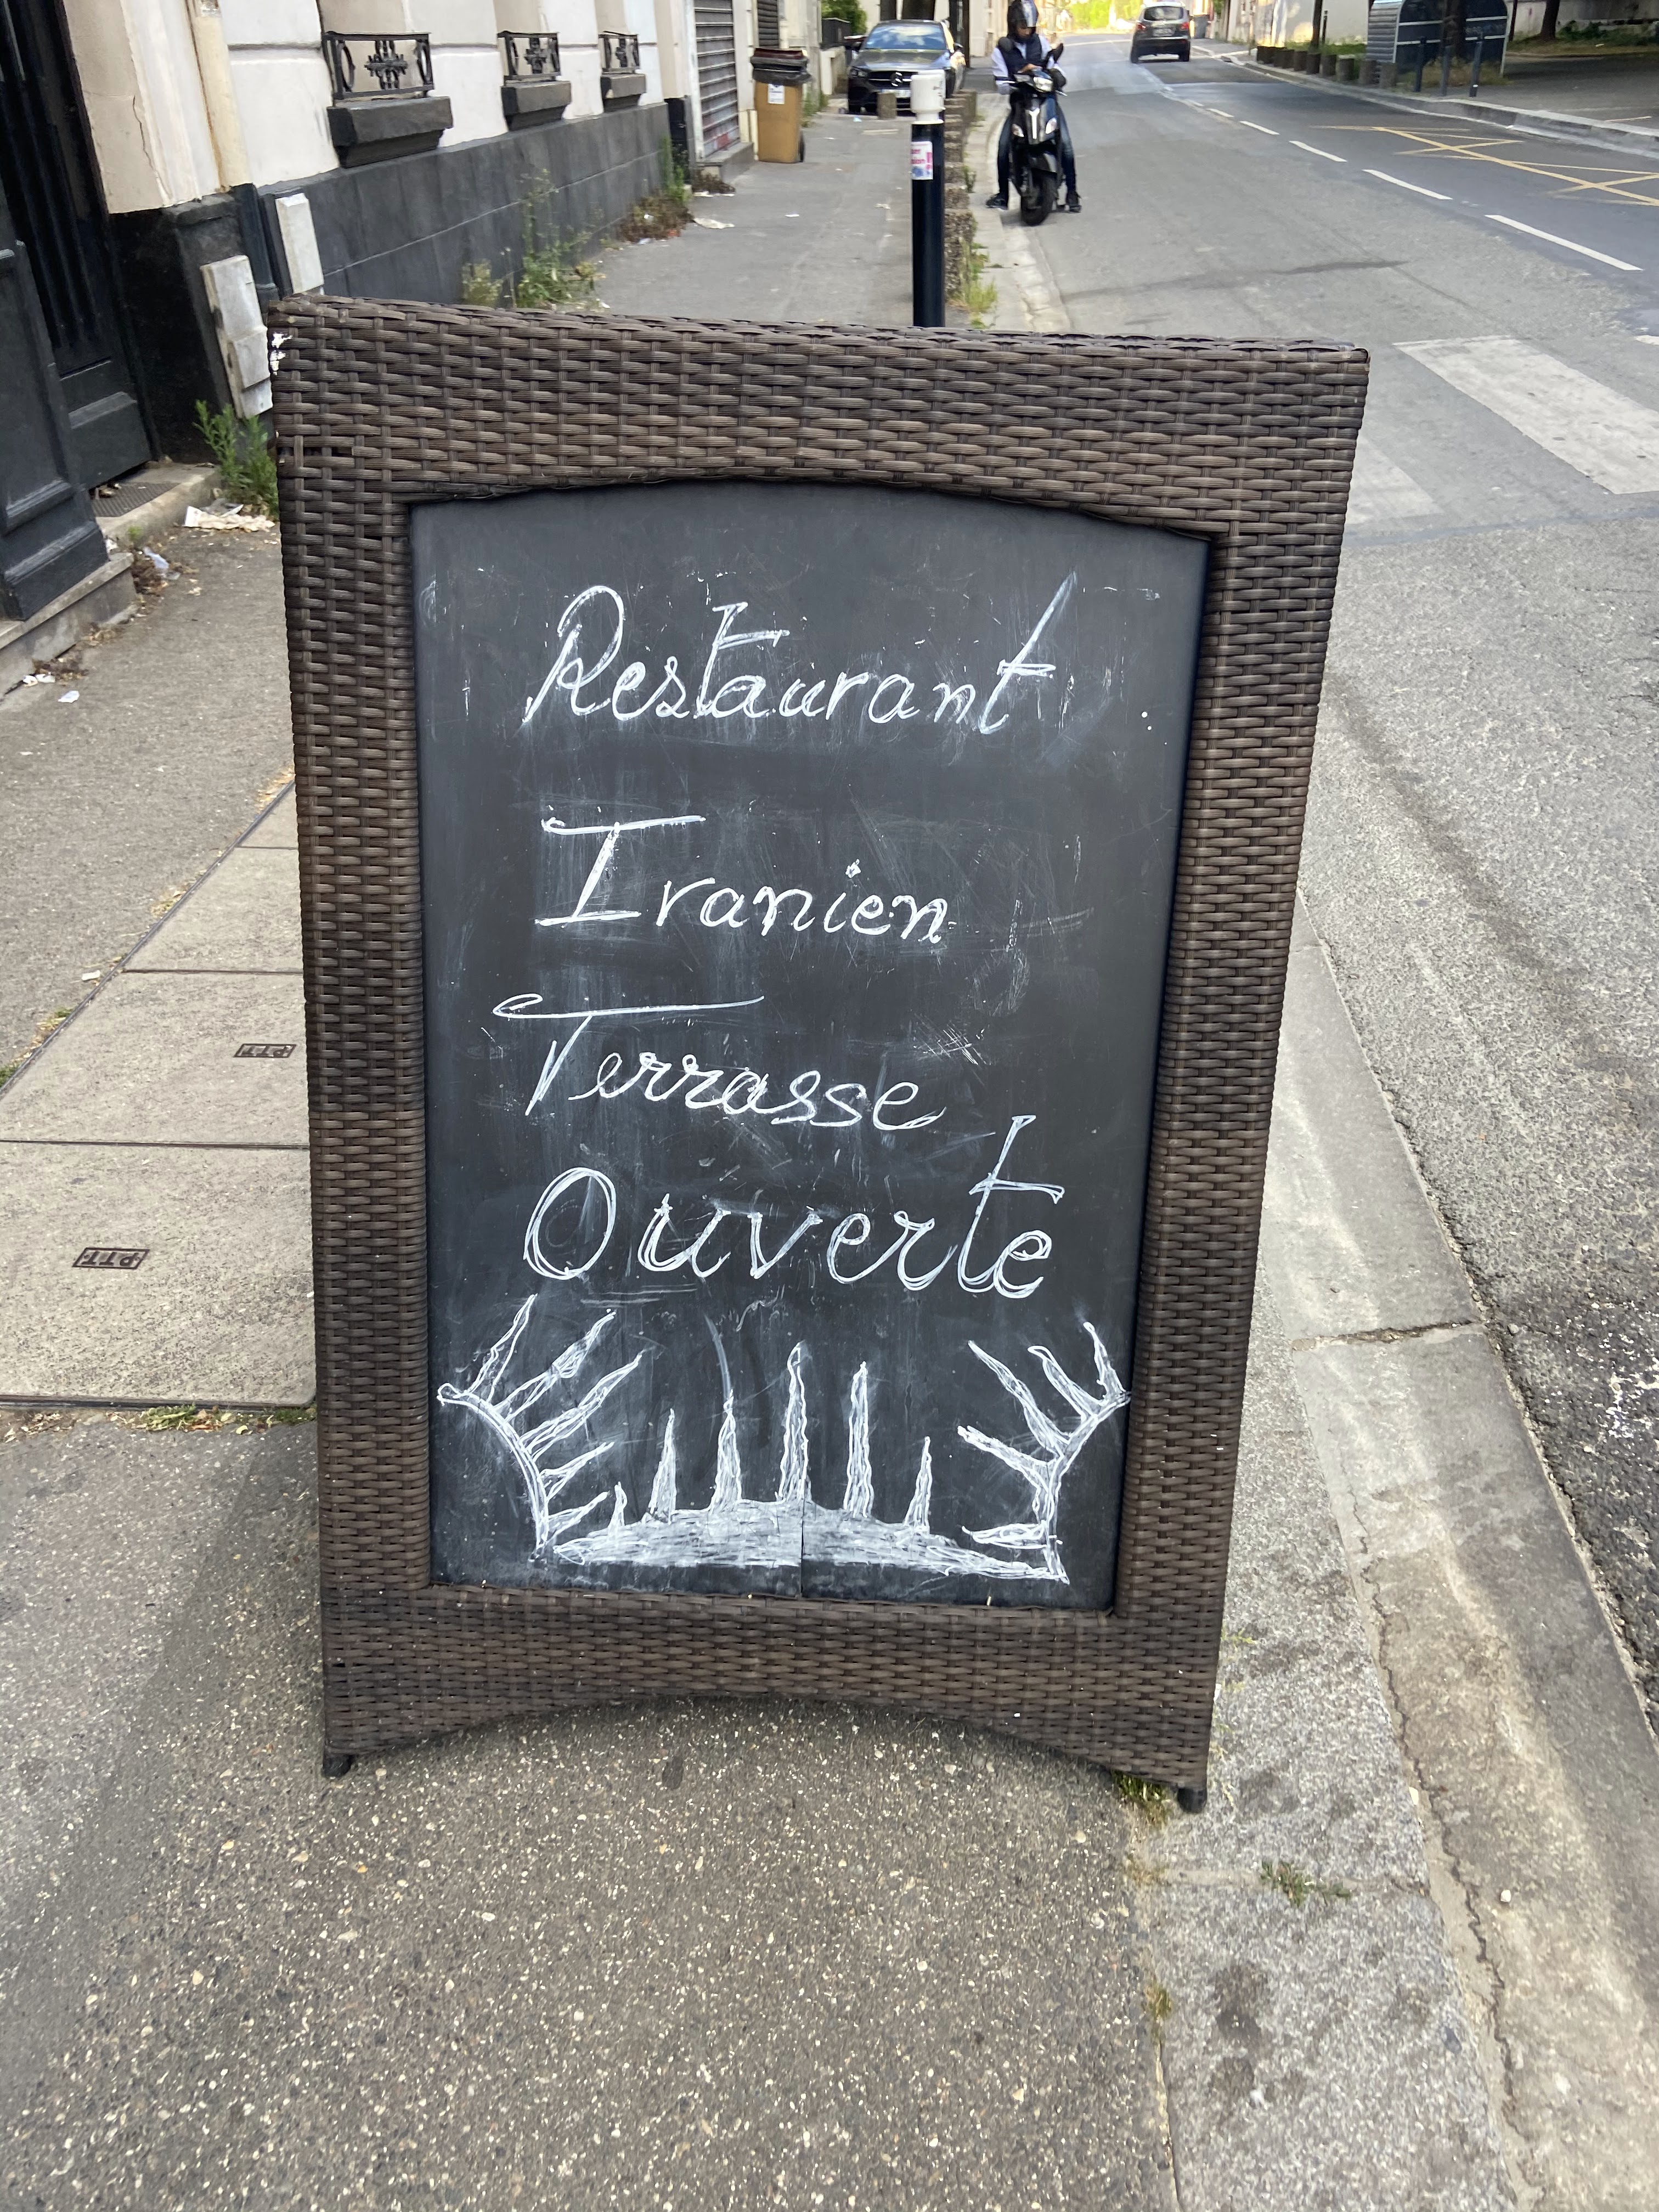 Restaurant
Iranien
Terrasse
Ouverte
PTT
PTT